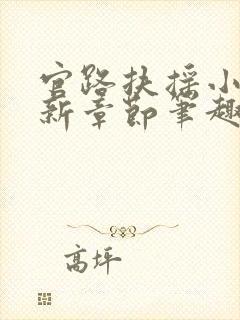 官路扶摇小
新章节笔趣
高坪